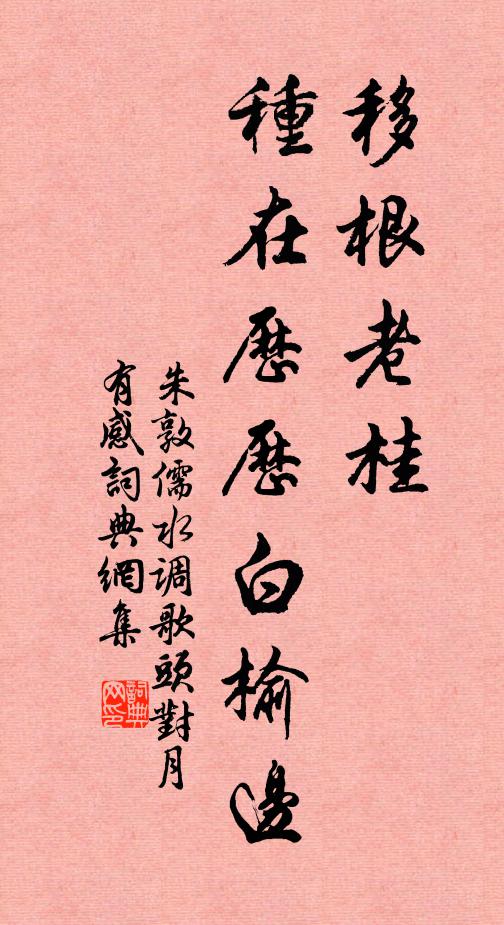 移根老桂
種在歷歷白榆邊
朱敦儒水调歌頭對月
有感詞典網集
詞典
网印